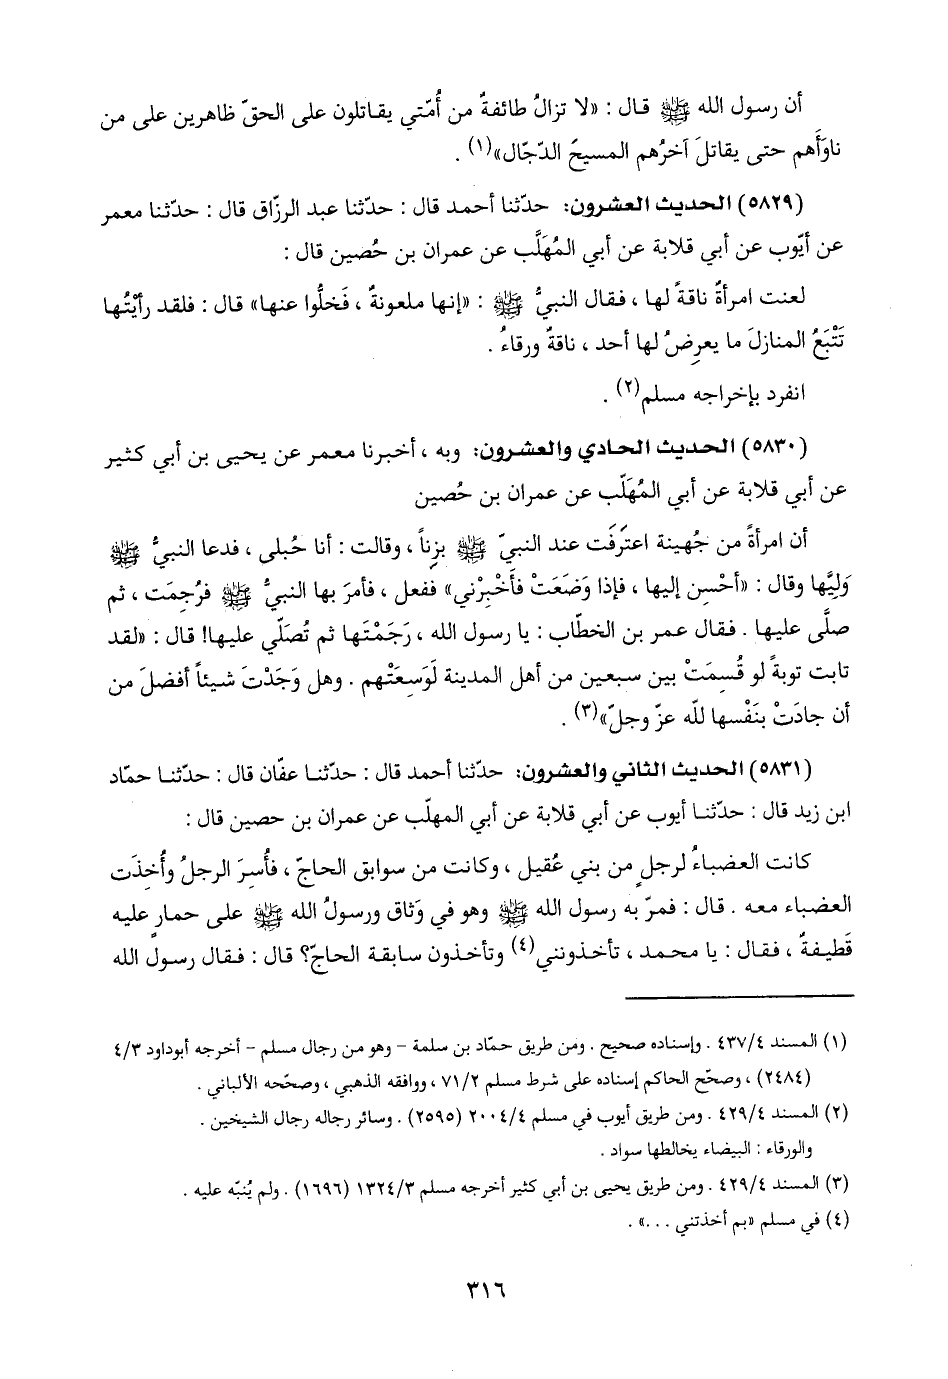 أن رسول الله ﷺ قال : «لا تزالُ طائفةٌ من أُمّتي يقاتلون على الحقّ ظاهرين على من
ناوَأَهم حتى يقاتلَ آخرُهم المسيحَ الدّجّال»(١) .
(٥٨٢٩) الحديث العشرون: حدّثنا أحمد قال : حدّثنا عبد الرزّاق قال : حدّثنا معمر
عن أيّوب عن أبي قلابة عن أبي المُهَلَّب عن عمران بن حُصين قال :
لعنت امرأةٌ ناقةً لها ، فقال النبيُّ ﷺ : «إنها ملعونةٌ ، فَخلُّوا عنها» قال : فلقد رأيْتُها
تَتْبَعُ المنازلَ ما يعرِضُ لها أحد ، ناقةٌ ورقاءُ .
انفرد بإخراجه مسلم(٢) .
(٥٨٣٠) الحديث الحادي والعشرون: وبه ، أخبرنا معمر عن يحيى بن أبي كثير
عن أبي قلابة عن أبي المُهَلّب عن عمران بن حُصين
أن امرأةً من جُهينة اعتَرفَت عند النبيّ ﷺ بزِناً ، وقالت : أنا حُبلى ، فدعا النبيُّ ﷺ
وَليَّها وقال : «أحْسِن إليها ، فإذا وَضَعَتْ فأَخْبِرْني» ففعل ، فأمرَ بها النبيُّ ﷺ فرُجِمَت ، ثم
صلَّى عليها . فقال عمر بن الخطّاب : يا رسول الله ، رَجَمْتَها ثم تُصَلّي عليها! قال : «لقد
تابت توبةً لو قُسِمَتْ بين سبعين من أهل المدينة لَوَسِعَتْهم . وهل وَجَدْتَ شيئاً أفضلَ من
أن جادَتْ بنَفْسها للّه عزّ وجلّ»(٣) .
(٥٨٣١) الحديث الثاني والعشرون: حدّثنا أحمد قال : حدّثنا عفّان قال : حدّثنا حمّاد
ابن زيد قال : حدّثنا أيوب عن أبي قلابة عن أبي المهلّب عن عمران بن حصين قال :
كانت العضباءُ لرجلٍ من بني عُقيل ، وكانت من سوابق الحاجّ ، فأُسرَ الرجلُ وأُخِذَت
العضباء معه . قال : فمرّ به رسول الله ﷺ وهو في وَثاق ورسولُ الله ﷺ على حمارٍ عليه
قَطيفةٌ ، فقال : يا محمد ، تأخذونني(٤) وتأخذون سابقة الحاجّ؟ قال : فقال رسول الله
(١) المسند ٤/ ٤٣٧ . وإسناده صحيح . ومن طريق حمّاد بن سلمة - وهو من رجال مسلم - أخرجه أبوداود ٣/ ٤
(٢٤٨٤) ، وصحّح الحاكم إسناده على شرط مسلم ٢/ ٧١ ، ووافقه الذهبي ، وصحّحه الألباني .
(٢) المسند ٤/ ٤٢٩ . ومن طريق أيوب في مسلم ٤/ ٢٠٠٤ (٢٥٩٥) . وسائر رجاله رجال الشيخين .
والورقاء : البيضاء يخالطها سواد .
(٣) المسند ٤/ ٤٢٩ . ومن طريق يحيى بن أبي كثير أخرجه مسلم ٣/ ١٣٢٤ (١٦٩٦) . ولم يُنبّه عليه .
(٤) في مسلم «بم أخذتني . . .» .
٣١٦